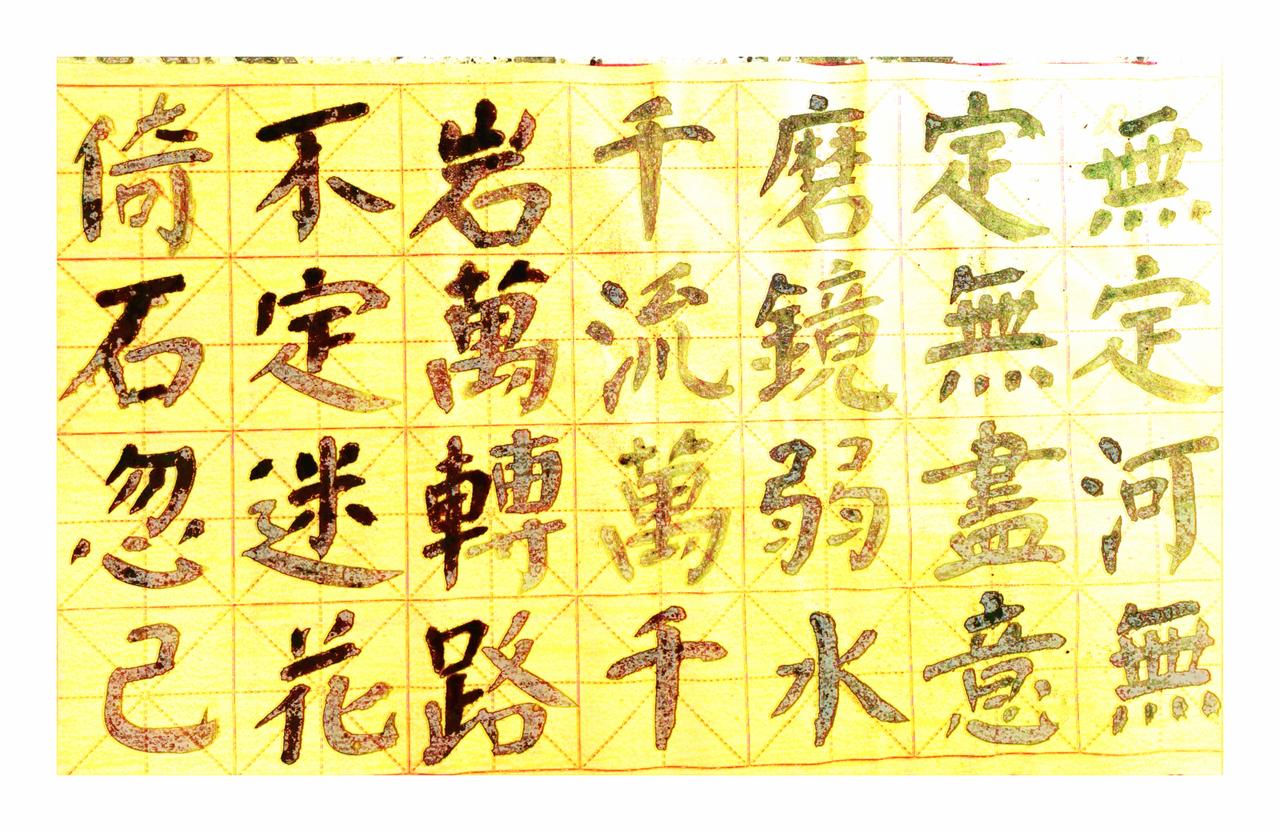 無定河無
定無盡意
磨鏡弱水
千流萬千
岩萬轉路
不定迷花
倚石忽己